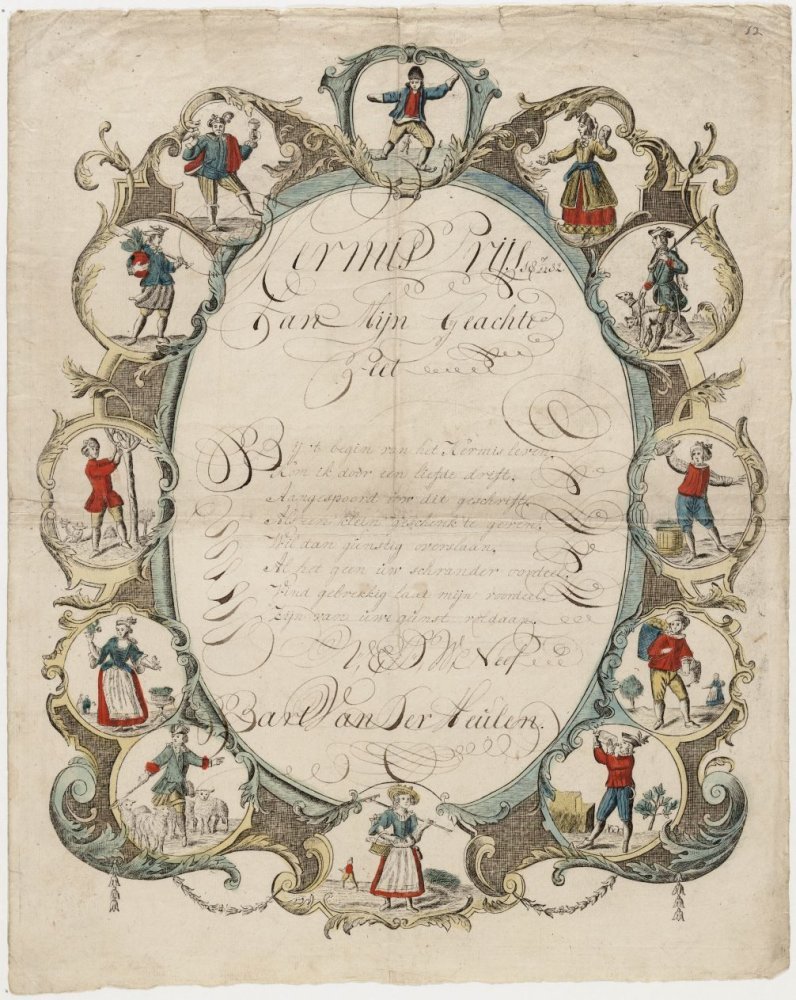 52
Kermis Prijs
Van Mijn Geachte
Piet
Bij 't begin van het Kermis leven,
Kom ik door een liefde drift,
Aangespoord om dit geschrift,
Als een klein geschenk te geven.
Wil dan günstig overslaan.
Al het geen uw schrander oordeel,
Vind gebrekkig laat mijn voordeel,
Zijn van uwe günst voldaan.
Neef
Bart Van Der Meülen.